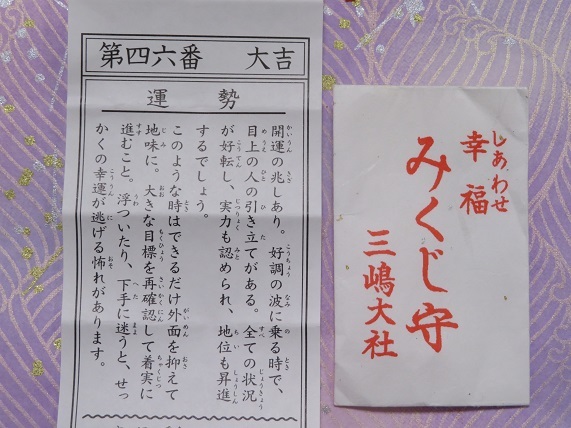 第四六番　大吉
運　勢
開運の兆しあり。好調の波に乗る時で、
目上の人の引き立てがある。全ての状況
が好転し、実力も認められ、地位も昇進
するでしょう。
このような時はできるだけ外面を抑えて
地味に。大きな目標を再確認して着実に
進むこと。浮ついたり、下手に迷うと、せっ
かくの幸運が逃げる怖れがあります。
しあわせ
幸福
みくじ守
三嶋大社